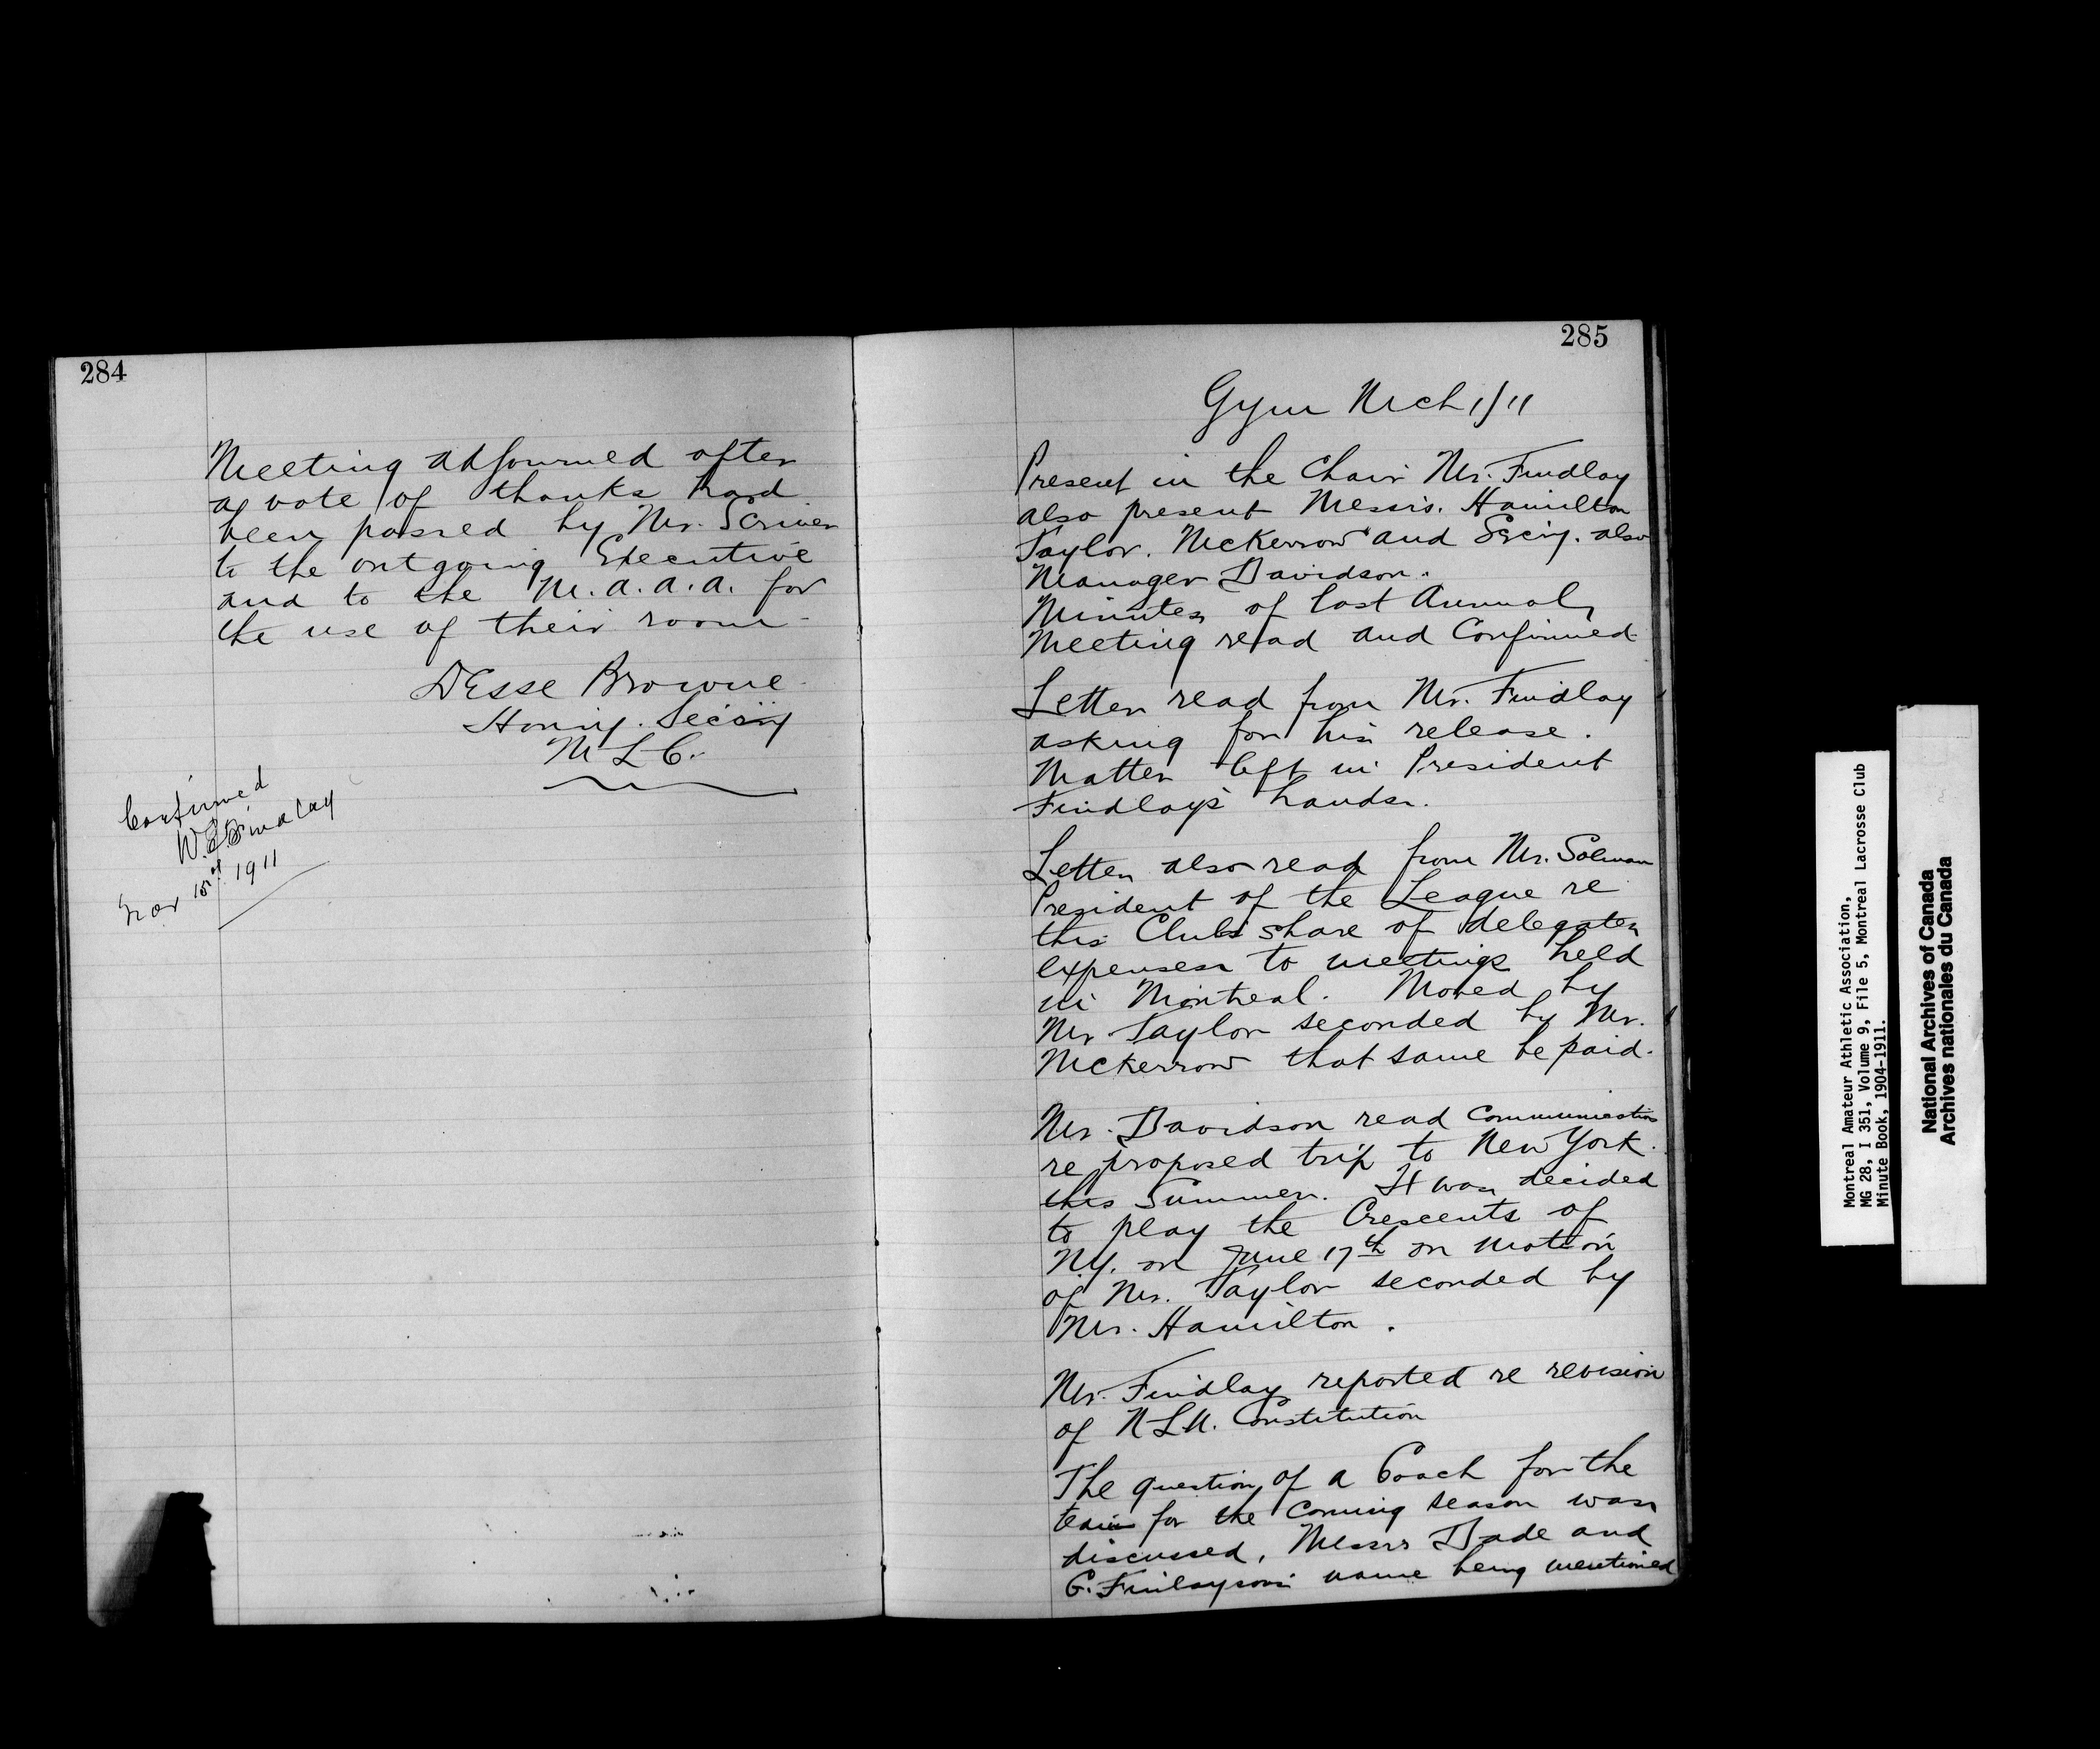 284
Meeting adjourned after
a vote of thanks had
been passed by Mr. Scriver
to the outgoing Executive
and to the M.A.A.A. for
the use of their room-
DEsse Browne
Hon'y. Sec'y
M L C.
Confirmed
W. Findlay
1911
285
Gym Mch 1/11
Present in the Chair Mr. Findlay
also present Messrs. Hamilton
Taylor. McKerrow and Sec'y. also
Manager Davidson.
Minutes of last Annual
Meeting read and Confirmed
Letter read from Mr. Findlay
asking for his release.
Matter left in President
Findlay's hands.
Letter also read from Mr. Solman
President of the League re
this Clubs share of delegates
expenses to meetings held
in Montreal. Moved by
Mr Taylor seconded by Mr.
McKerrow that same be paid.
Mr. Davidson read Communication
re proposed trip to New York.
this Summer. It was decided
to play the Crescents of
N.Y. on June 17th on motion
of Mr. Taylor seconded by
Mr. Hamilton.
Mr. Findlay reported re revision
of N L U. Constitution
The question of a Coach for the
team for the coming season was
discussed, Messrs Dade and
G. Finlayson's name being mentioned
Montreal Amateur Athletic Association,
MG 28, I 351, Volume 9, File 5, Montreal Lacrosse Club
Minute Book, 1904-1911.
National Archives of Canada
Archives nationales du Canada